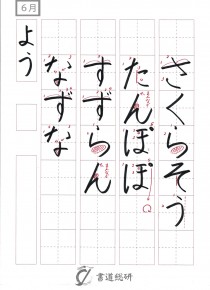 6月
さくらそう
たんぽぽ
すずらん
なずな
よう
書道総研